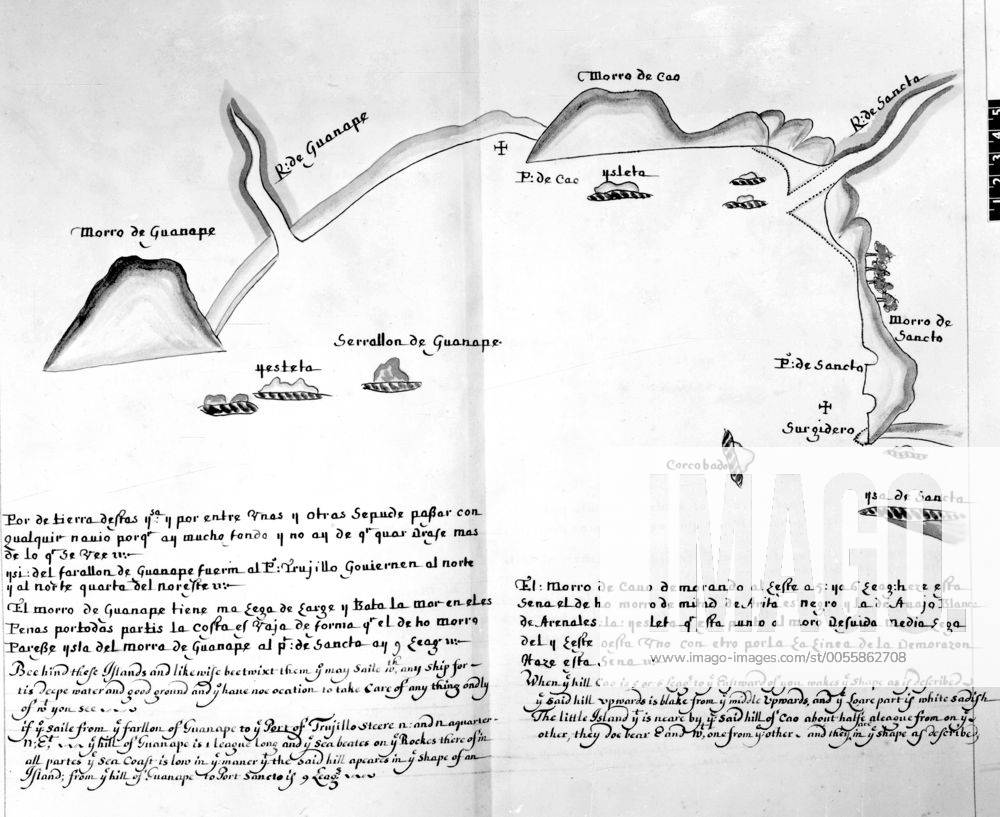 Morro de Cao
R: de Sancta
R: de Guanape
P: de Cao
ysleta
Morro de Guanape
Morro de
Sancto
Serrallon de Guanape
yesteta
P: de Sancto
Surgidero
Corcobado
ysa de Sancta
Por de tierra destas y por entre Vnas y otras Sepude paßar con
qualquir nauio porqr ay mucho fondo y no ay de qr
mas
de lo qr Se Vee
ysi: del farallon de Guanape fuerm al P: Trujillo Gouiernen al norte
y al norte quarta del noreste
El morro de Guanape tiene ma Lega de Large y Bata la mar en el es
Penas portodas partis la Costa es Vaja de forma qr el de ho morro
Pareße ysla del morra de Guanape al pt: de Sancto ay 9 Leag
Beehind these Islands and likewise beetwixt them ye may Saile wth any Ship for
tis deepe water and good ground and ye haue noe ocation to take Care of any thing ondly
of wt you see
if ye Saile from ye farllon of Guanape to ye Port of Trujillo Steere n: and n aquarter
n: Et ye hill of Guanape is 1 league long and ye Sea beates on ye Rockes there of in
all partes ye Sea Coast is low in ye maner yt the Said hill apeares in ye Shape of an
Island; from ye hill of Guanape to Port Sancto is 9 Leag
El: Morro de
demorando al Leste
Sena el de ho morro de
negro y la de
Blanca
de Arenales
ysleta qr esta
el moro Desuida media Lega
del y Leste oeste Vno con otro por la Linea de la Demorazon
Haze esta Sena
When ye hill Cao is 5 or 6 Leag to ye Eastward of you makes ye Shape as ye described
ye Said hill vpwards is blake from ye middle Vpwards, and ye Loare part is white Sadish
The little Island yt is neare by ye Said hill of Cao about halfe aleague from on ye
other, they doe bear E and W, one from ye other and they in ye Shape as described
1 2 3 4 5
IMAGO
www.imago-images.com/st/0055862708